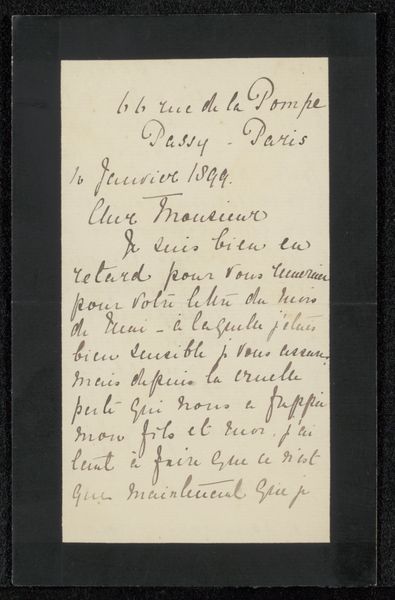 66 rue de la Pompe
Passy - Paris
10 Janvier 1899.
Cher Monsieur
Je suis bien en
retard pour vous remercier
pour votre lettre du mois
de Mai - à laquelle j'étais
bien sensible je vous assure
mais depuis la cruelle
perte qui nous a frappé
mon fils et moi, j'ai
tant à faire que ce n'est
que maintenant que je